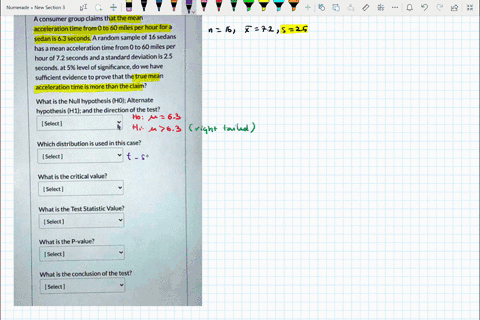 Numerade » New Section 3
A consumer group claims that the mean
acceleration time from 0 to 60 miles per hour for a
sedan is 6.3 seconds. A random sample of 16 sedans
has a mean acceleration time from 0 to 60 miles per
hour of 7.2 seconds and a standard deviation is 2.5
seconds. at 5% level of significance, do we have
sufficient evidence to prove that the true mean
acceleration time is more than the claim?
n = 16, x̄ = 7.2, s = 2.5
What is the Null hypothesis (H0); Alternate
hypothesis (H1); and the direction of the test?
[ Select ]
H0: μ = 6.3
H1: μ > 6.3 (right tailed)
Which distribution is used in this case?
[ Select ]
t - s
What is the critical value?
[ Select ]
What is the Test Statistic Value?
[ Select ]
What is the P-value?
[ Select ]
What is the conclusion of the test?
[ Select ]